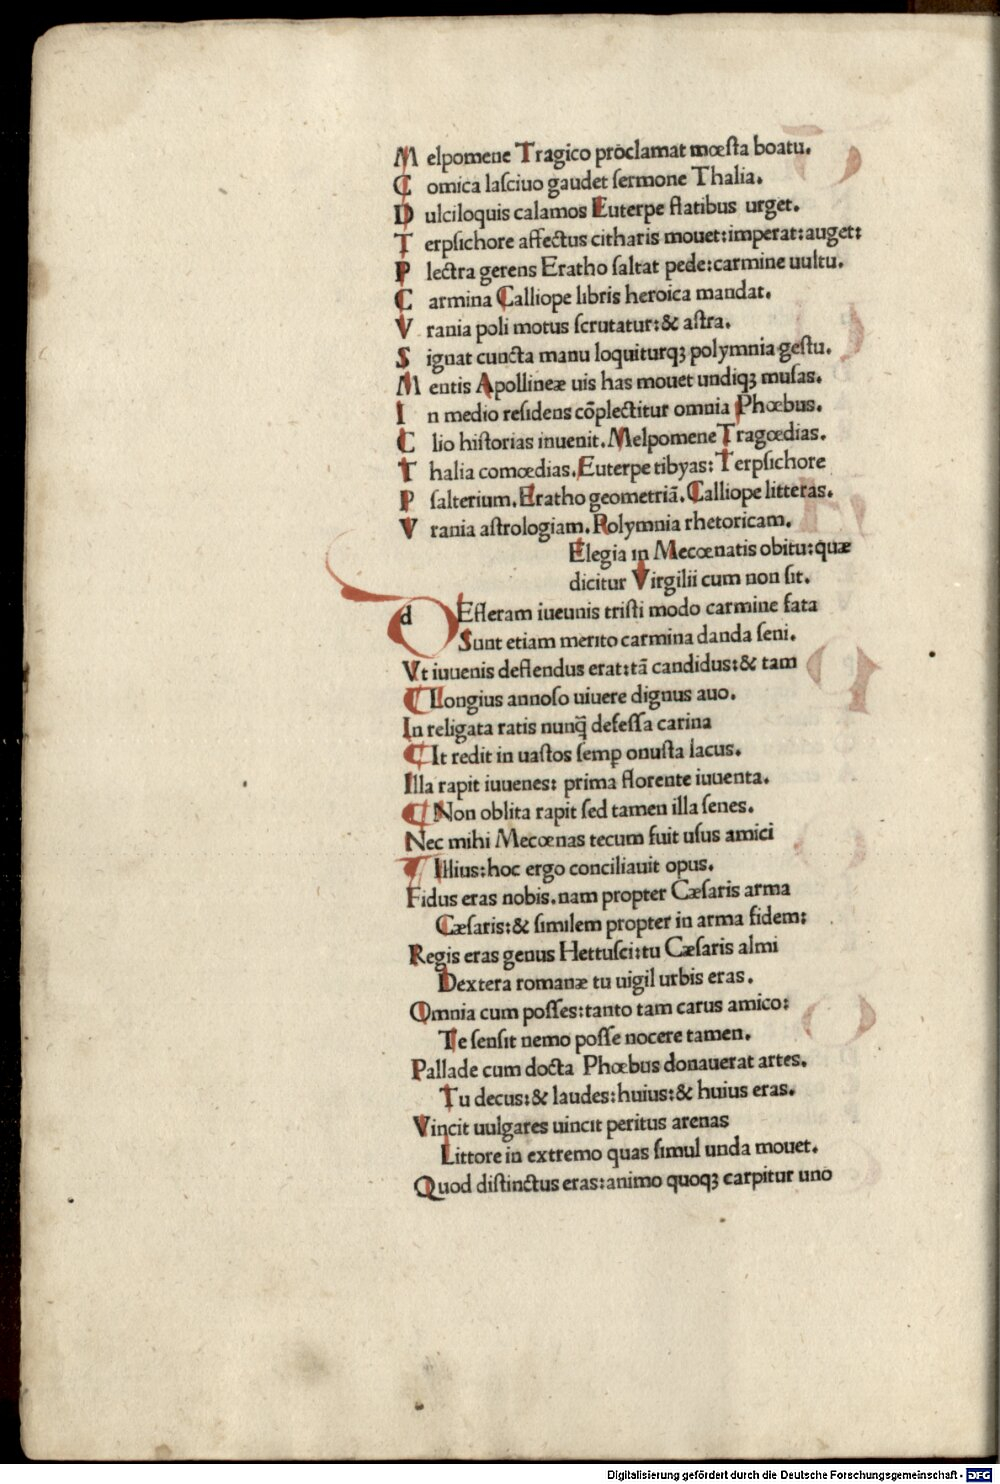 M elpomene Tragico proclamat mœſta boatu.
C omica laſciuo gaudet ſermone Thalia.
D ulciloquis calamos Euterpe flatibus urget.
T erpſichore affectus citharis mouet:imperat:auget:
P lectra gerens Eratho ſaltat pede:carmine uultu.
C armina Calliope libris heroica mandat.
V rania poli motus ſcrutatur:& aſtra.
S ignat cuncta manu loquiturqꝫ polymnia geſtu.
M entis Apollineæ uis has mouet undiqꝫ muſas.
I n medio reſidens cōplectitur omnia Phœbus.
C lio hiſtorias inuenit. Melpomene Tragœdias.
T halia comœdias. Euterpe tibyas: Terpſichore
P ſalterium. Eratho geometriā. Calliope litteras.
V rania aſtrologiam. Polymnia rhetoricam.
Elegia in Mecœnatis obitu:quæ
dicitur Virgilii cum non ſit.
d Efleram iueunis triſti modo carmine fata
Sunt etiam merito carmina danda ſeni.
Vt iuuenis deflendus erat:tā candidus:& tam
Longius annoſo uiuere dignus auo.
In religata ratis nunq̄ defeſſa carina
It redit in uaſtos ſemꝑ onuſta lacus.
Illa rapit iuuenes: prima florente iuuenta.
Non oblita rapit ſed tamen illa ſenes.
Nec mihi Mecœnas tecum fuit uſus amici
Illius:hoc ergo conciliauit opus.
Fidus eras nobis.nam propter Cæſaris arma
Cæſaris:& ſimilem propter in arma fidem:
Regis eras genus Hettuſci:tu Cæſaris almi
Dextera romanæ tu uigil urbis eras.
Omnia cum poſſes:tanto tam carus amico:
Te ſenſit nemo poſſe nocere tamen.
Pallade cum docta Phœbus donauerat artes.
Tu decus:& laudes:huius:& huius eras.
Vincit uulgares uincit peritus arenas
Littore in extremo quas ſimul unda mouet.
Quod diſtinctus eras:animo quoqꝫ carpitur uno
Digitalisierung gefördert durch die Deutsche Forschungsgemeinschaft - DFG